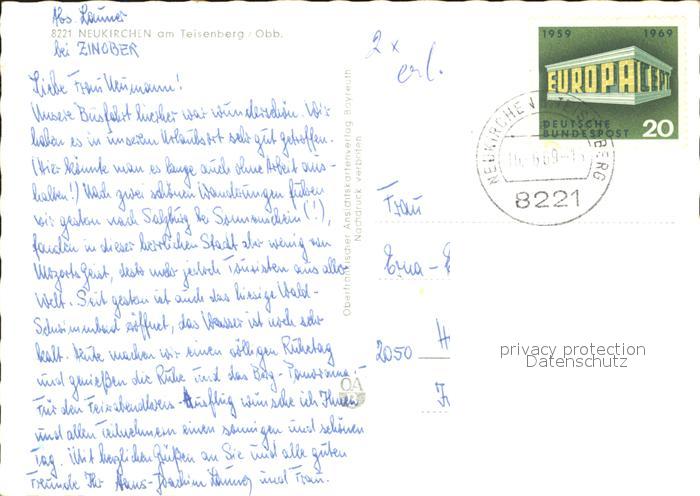 Abs. Launer
8221 NEUKIRCHEN am Teisenberg / Obb.
bei ZINOBER
Liebe Frau Neumann!
Unsere Busfahrt hierher war wunderschön. Wir
haben es in unserem Urlaubsort sehr gut getroffen.
(Hier könnte man es lange auch ohne Arbeit aus-
halten!) Nach zwei schönen Wanderungen fuhren
wir gestern nach Salzburg bei Sonnenschein (!),
fanden in dieser herrlichen Stadt aber wenig von
Mozarts Geist, dafür mehr jedoch Touristen aus aller
Welt. Seit gestern ist auch das hiesige Wald-
Schwimmbad eröffnet, das Wasser ist noch sehr
kalt. Heute machen wir einen völligen Ruhetag
und genießen die Ruhe und das Berg-Panorama!
Für den Feierabendkreis-Ausflug wünsche ich Ihnen
und allen Teilnehmern einen sonnigen und schönen
Tag. Mit herzlichen Grüßen an Sie und alle guten
Freunde Ihr Hans-Joachim Launer und Frau.
Oberfränkischer Ansichtskartenverlag Bayreuth
Nachdruck verboten
OA
2x
erl.
1959 1969
EUROPA CEPT
DEUTSCHE
BUNDESPOST 20
NEUKIRCHEN TEISENBERG
16.6.69-15
8221
Frau
Erna-
2050 H
privacy protection
Datenschutz